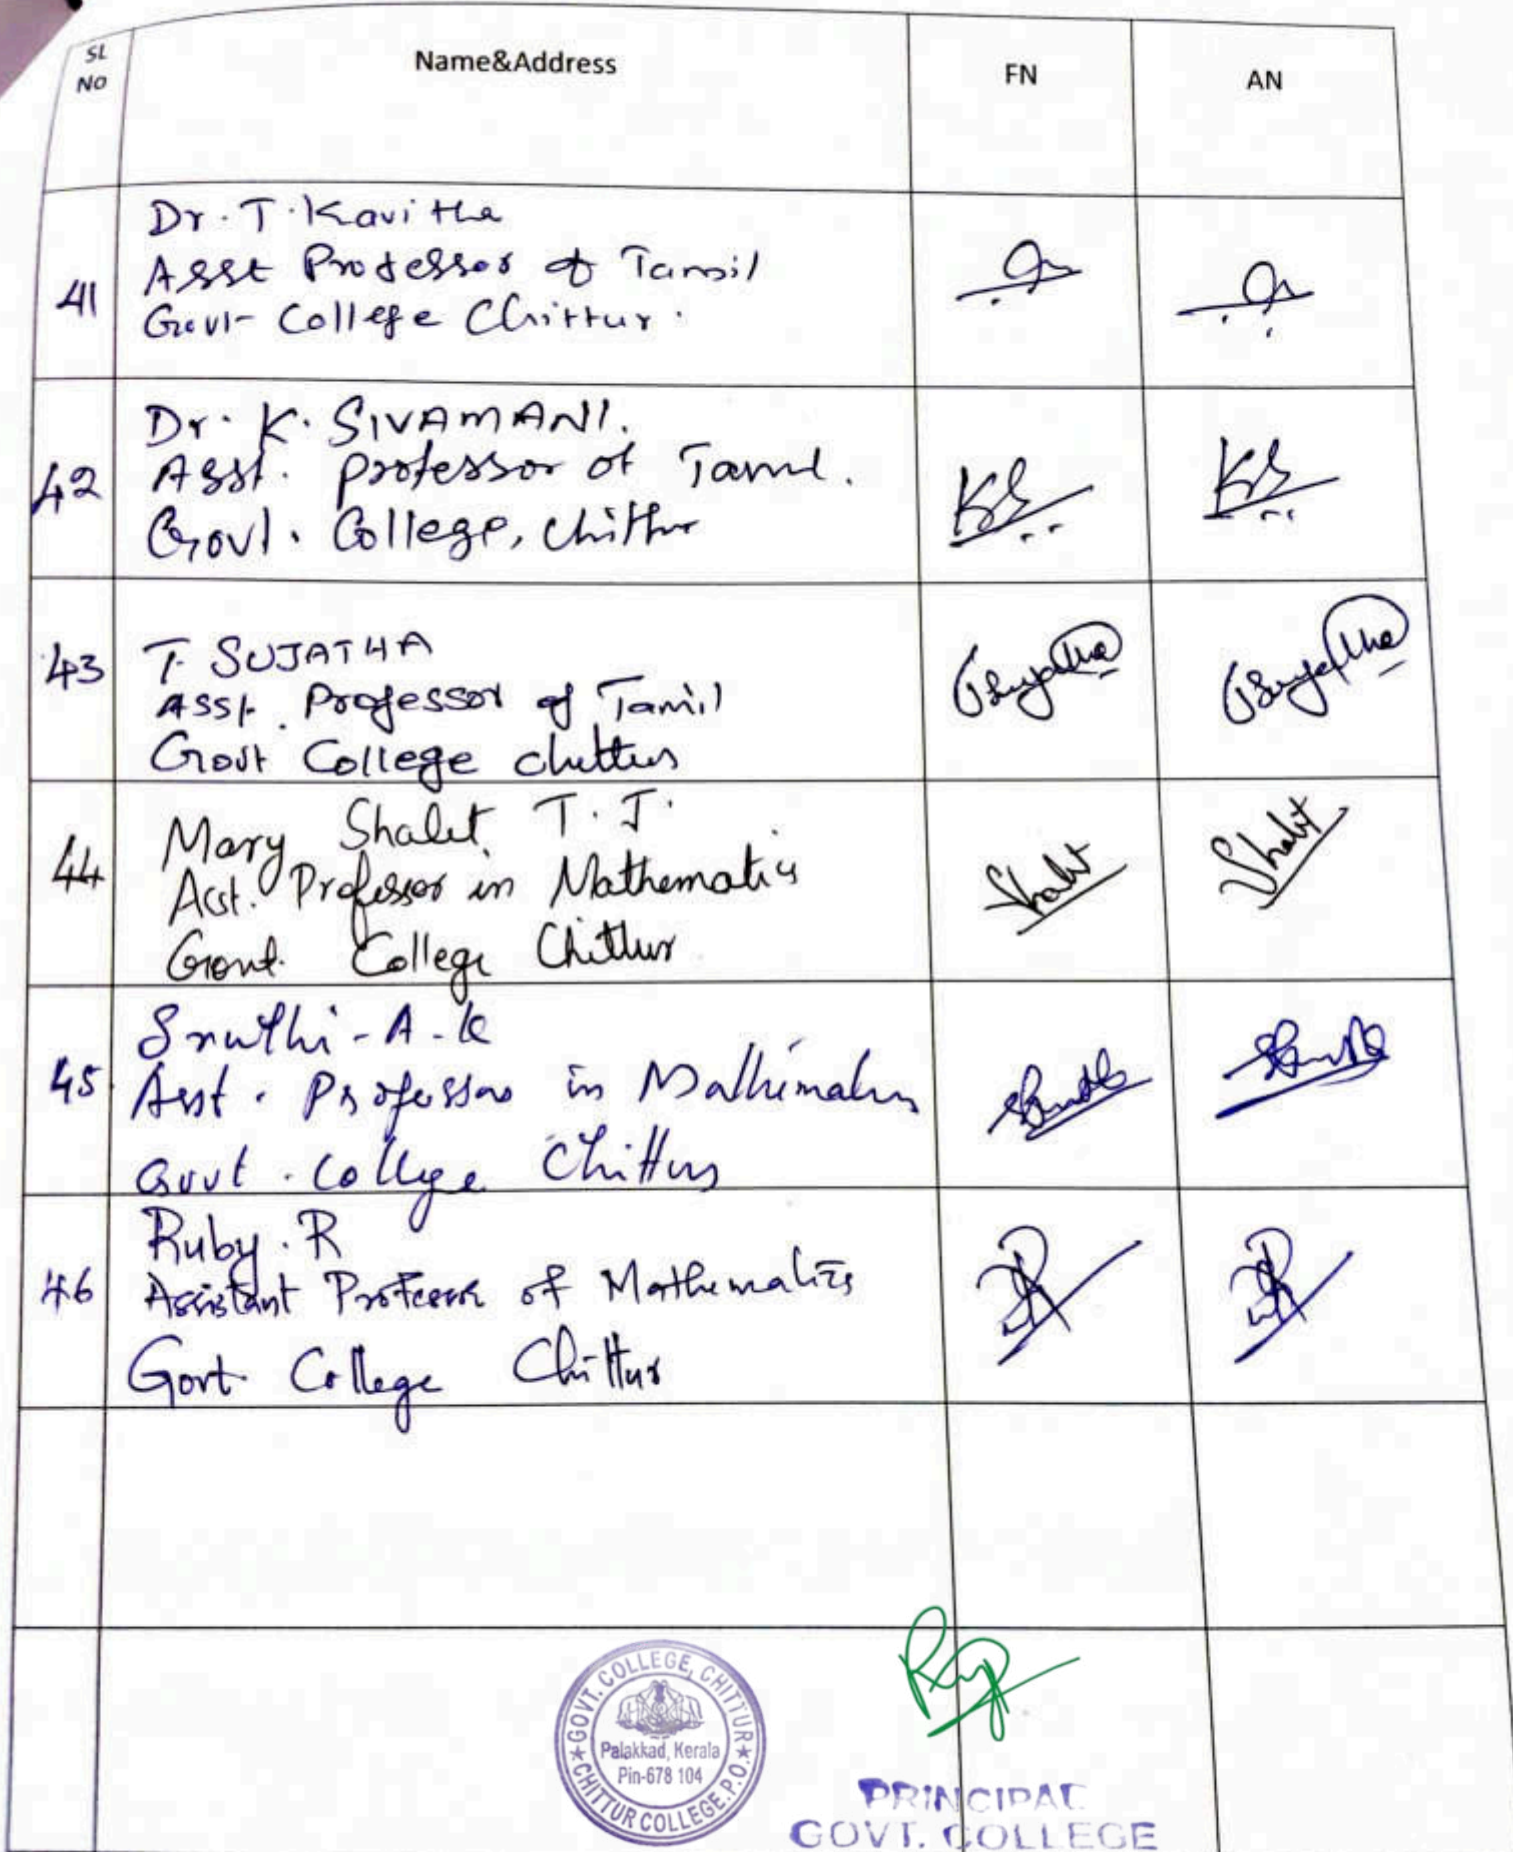 SL No
Name&Address
FN
AN
41
Dr. T. Kavitha
Asst Professor of Tamil
Govt College Chittur.
42
Dr. K. SIVAMANI.
Asst. professor of Tamil.
Govt. College, chittur
KS
KS
43
T. SUJATHA
Asst. Professor of Tamil
Govt College chittur
Tsujatha
Tsujatha
44
Mary Shalet T. J.
Asst. Professor in Mathematics
Govt. College Chittur
Shalet
Shalet
45
Sruthi - A - K
Asst. Professor in Mathematics
Govt. College Chittur
Sruthi
Sruthi
46
Ruby. R
Assistant Professor of Mathematics
Govt. College Chittur
GOVT. COLLEGE, CHITTUR
Palakkad, Kerala
Pin-678 104
CHITTUR COLLEGE.P.O.
PRINCIPAL
GOVT. COLLEGE